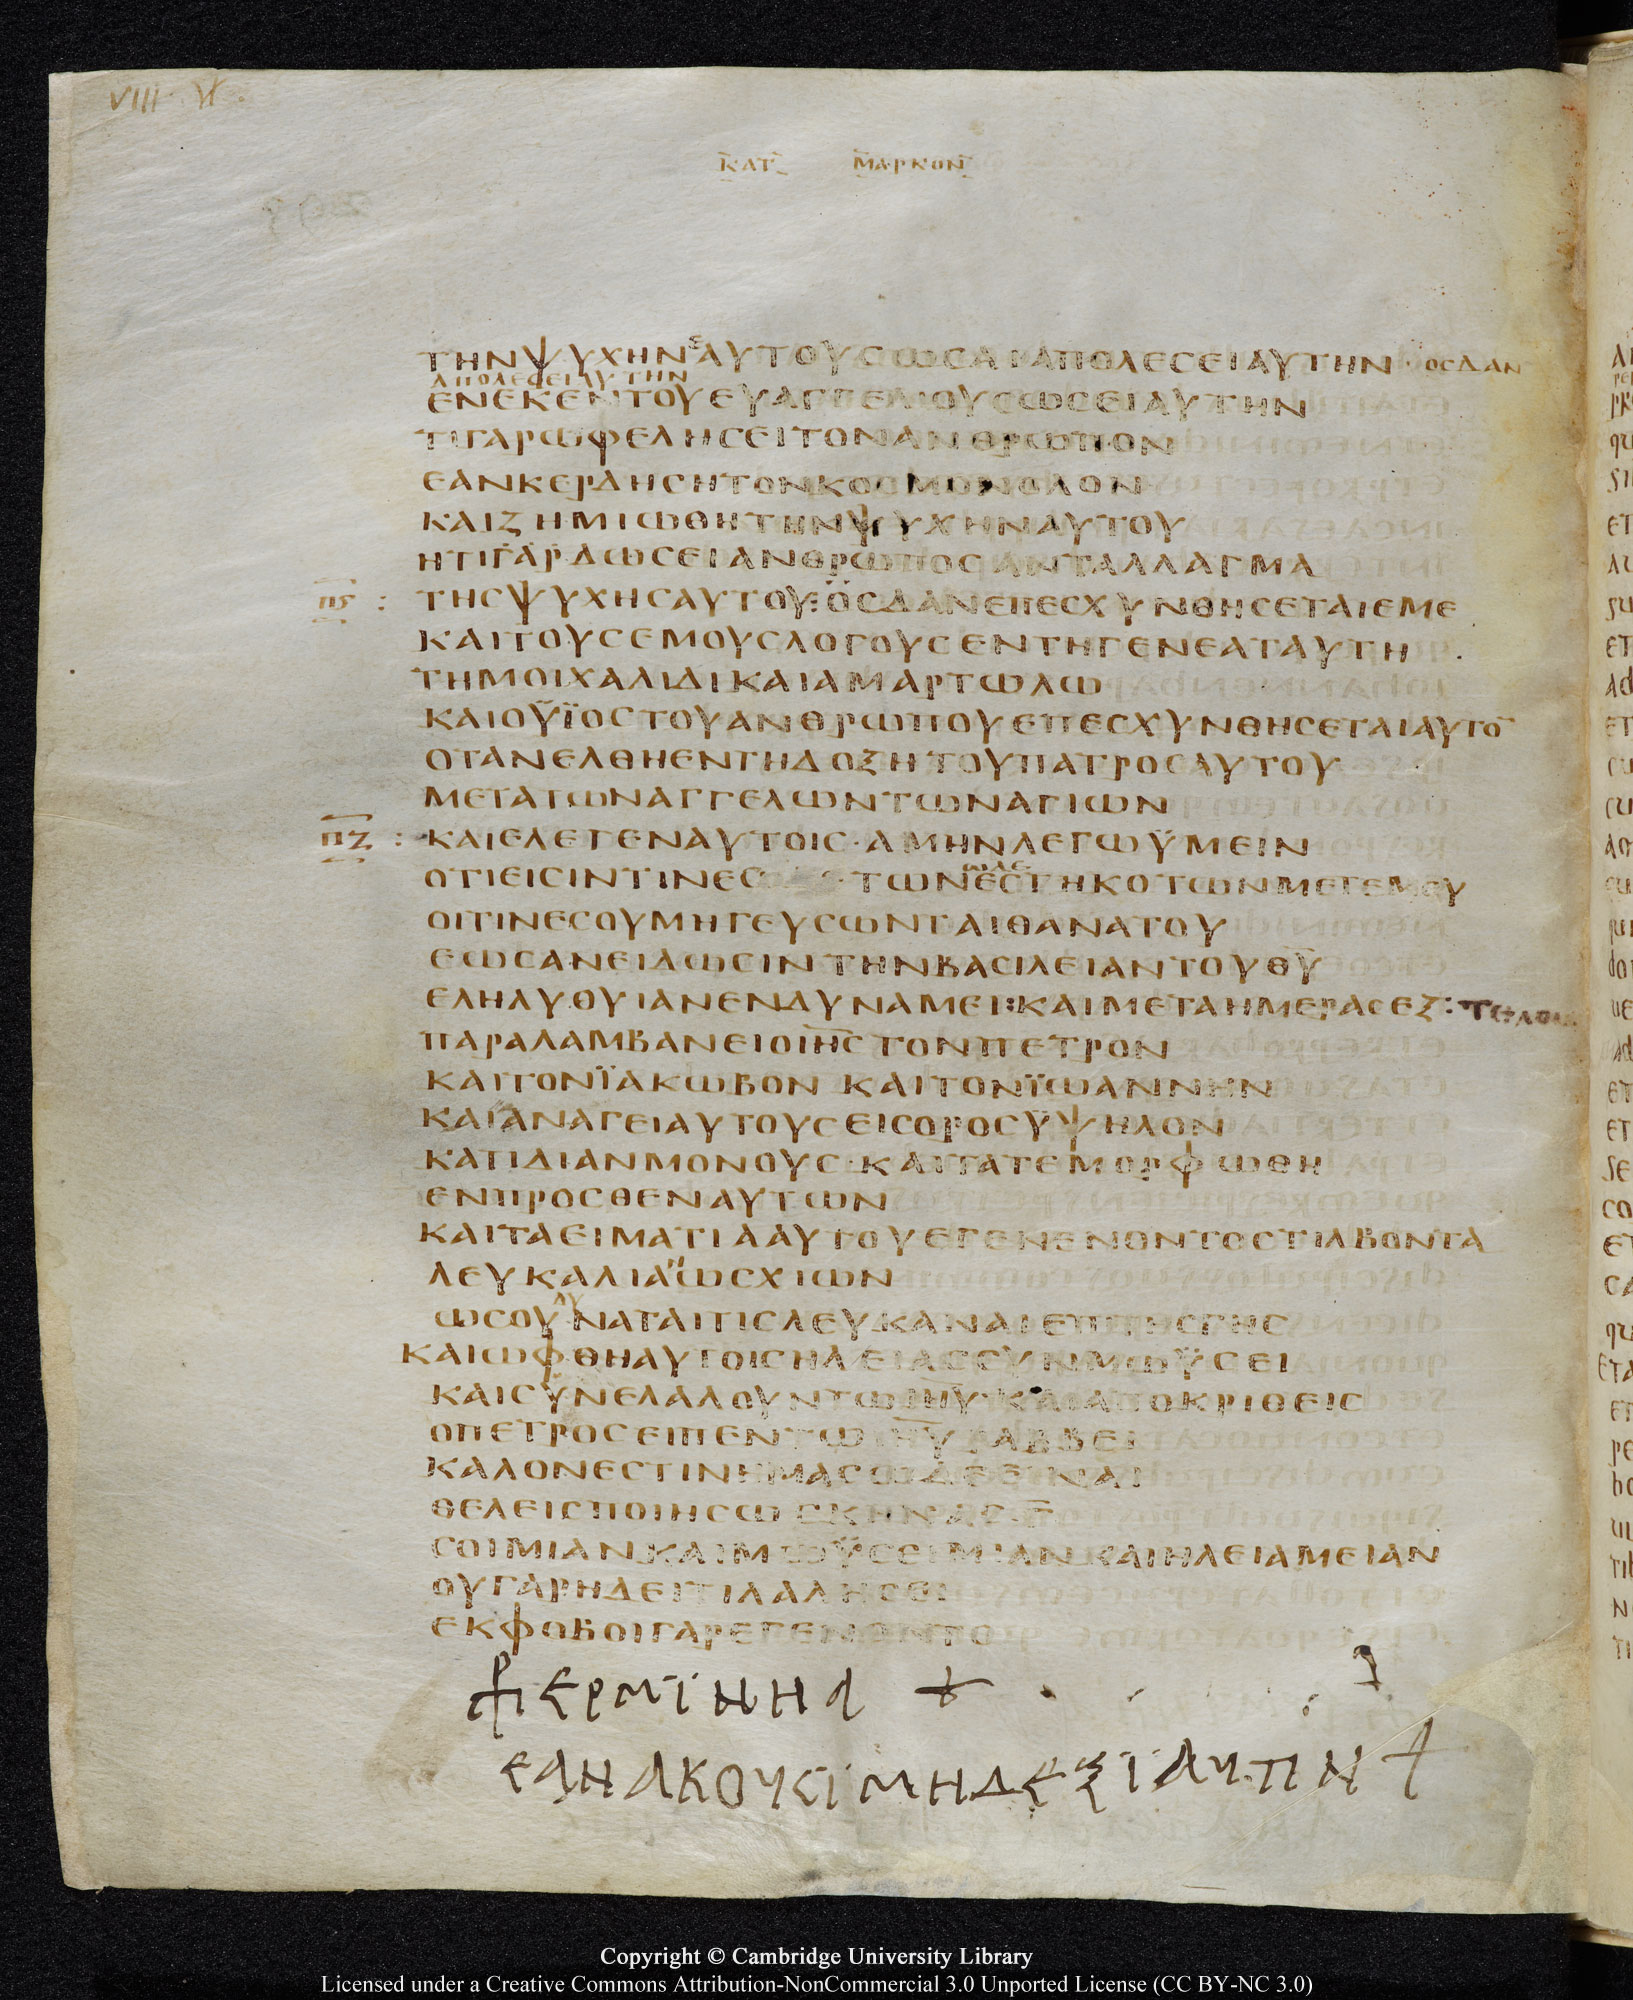 VIII VI.
ΚΑΤ ΜΑΡΚΟΝ
ΤΗΝΨΥΧΗΝΕΑΥΤΟΥΣΩΣΑΙΑΠΟΛΕΣΕΙΑΥΤΗΝ · ΟΣΔΑΝ
ΑΠΟΛΕΣΕΙΑΥΤΗΝ
ΕΝΕΚΕΝΤΟΥΕΥΑΓΓΕΛΙΟΥΣΩΣΕΙΑΥΤΗΝ
ΤΙΓΑΡΩΦΕΛΗΣΕΙΤΟΝΑΝΘΡΩΠΟΝ
ΕΑΝΚΕΡΔΗΣΗΤΟΝΚΟΣΜΟΝΟΛΟΝ
ΚΑΙΖΗΜΙΩΘΗΤΗΝΨΥΧΗΝΑΥΤΟΥ
ΗΤΙΓΑΡΔΩΣΕΙΑΝΘΡΩΠΟΣΑΝΤΑΛΛΑΓΜΑ
Π̅Ϛ̅ : ΤΗΣΨΥΧΗΣΑΥΤΟΥ:ΟΣΔΑΝΕΠΕΣΧΥΝΘΗΣΕΤΑΙΕΜΕ
ΚΑΙΤΟΥΣΕΜΟΥΣΛΟΓΟΥΣΕΝΤΗΓΕΝΕΑΤΑΥΤΗ
ΤΗΜΟΙΧΑΛΙΔΙΚΑΙΑΜΑΡΤΩΛΩ
ΚΑΙΟΥΪΟΣΤΟΥΑΝΘΡΩΠΟΥΕΠΕΣΧΥΝΘΗΣΕΤΑΙΑΥΤΟ̅
ΟΤΑΝΕΛΘΗΕΝΤΗΔΟΞΗΤΟΥΠΑΤΡΟΣΑΥΤΟΥ
ΜΕΤΑΤΩΝΑΓΓΕΛΩΝΤΩΝΑΓΙΩΝ
Π̅Ζ̅ : ΚΑΙΕΛΕΓΕΝΑΥΤΟΙΣ·ΑΜΗΝΛΕΓΩΫΜΕΙΝ
ΩΔΕ
ΟΤΙΕΙΣΙΝΤΙΝΕΣ ΤΩΝΕΣΤΗΚΟΤΩΝΜΕΤΕΜΟΥ
ΟΙΤΙΝΕΣΟΥΜΗΓΕΥΣΩΝΤΑΙΘΑΝΑΤΟΥ
ΕΩΣΑΝΕΙΔΩΣΙΝΤΗΝΒΑΣΙΛΕΙΑΝΤΟΥΘ̅Υ̅
ΕΛΗΛΥΘΥΙΑΝΕΝΔΥΝΑΜΕΙ:ΚΑΙΜΕΤΑΗΜΕΡΑΣΕΖ:
ΠΑΡΑΛΑΜΒΑΝΕΙΟΙ̅Η̅Σ̅ΤΟΝΠΕΤΡΟΝ
ΚΑΙΤΟΝΪΑΚΩΒΟΝ ΚΑΙΤΟΝΪΩΑΝΝΗΝ
ΚΑΙΑΝΑΓΕΙΑΥΤΟΥΣΕΙΣΟΡΟΣΫΨΗΛΟΝ
ΚΑΤΙΔΙΑΝΜΟΝΟΥΣ·ΚΑΙΤΑΤΕΜΟΡΦΩΘΗ
ΕΝΠΡΟΣΘΕΝΑΥΤΩΝ
ΚΑΙΤΑΕΙΜΑΤΙΑΑΥΤΟΥΕΓΕΝΕΝΟΝΤΟΣΤΙΛΒΟΝΤΑ
ΛΕΥΚΑΛΙΑΝΩΣΧΙΩΝ
ΔΥ
ΩΣΟΥΝΑΤΑΙΤΙΣΛΕΥΚΑΝΑΙΕΠΙΤΗΣΓΗΣ
ΚΑΙΩΦΘΗΑΥΤΟΙΣΗΛΕΙΑΣΣΥΝΜΩΫΣΕΙ
ΚΑΙΣΥΝΕΛΑΛΟΥΝΤΩΙ̅Η̅Υ̅·ΚΑΙΑΠΟΚΡΙΘΕΙΣ
ΟΠΕΤΡΟΣΕΙΠΕΝΤΩΙ̅Η̅Υ̅ΡΑΒΒΕΙ
ΚΑΛΟΝΕΣΤΙΝΗΜΑΣΩΔΕΕΙΝΑΙ
ΘΕΛΕΙΣΠΟΙΗΣΩΣΚΗΝΑΣ·Γ̅
ΣΟΙΜΙΑΝΚΑΙΜΩΫΣΕΙΜΙΑΝΚΑΙΗΛΕΙΑΜΕΙΑΝ
ΟΥΓΑΡΗΔΕΙΤΙΛΑΛΗΣΕΙ
ΕΚΦΟΒΟΙΓΑΡΕΓΕΝΟΝΤΟ
ΕΡΜΊΝΗΑ +
ΕΑΝΑΚΟΥΣΙΜΗΔΕΞΙΑΥΠΗ +
Copyright © Cambridge University Library
Licensed under a Creative Commons Attribution-NonCommercial 3.0 Unported License (CC BY-NC 3.0)